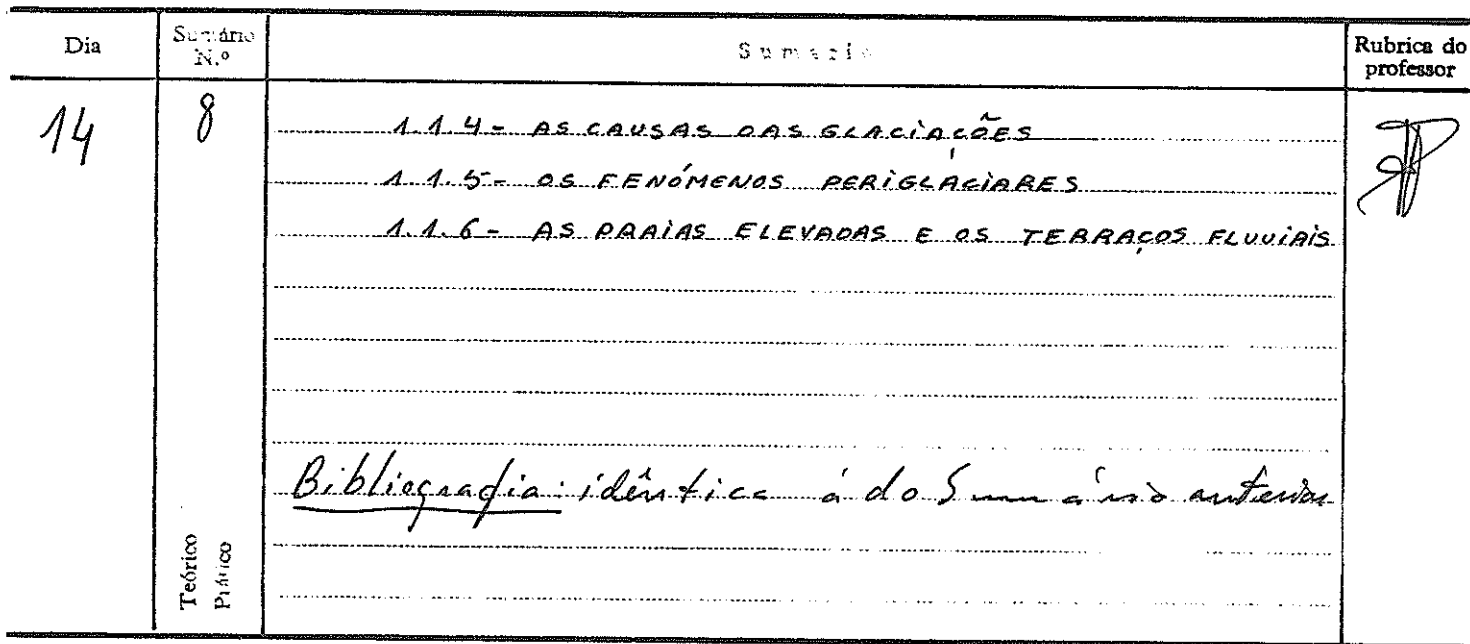 Dia
Sumário N.º
Sumário
Rubrica do professor
14
8
1.1.4- AS CAUSAS DAS GLACIAÇÕES
1.1.5- OS FENÓMENOS PERIGLACIARES
1.1.6- AS PRAIAS ELEVADAS E OS TERRAÇOS FLUVIAIS
Bibliografia: idêntica á do Sumário anterior
Teórico
Prático